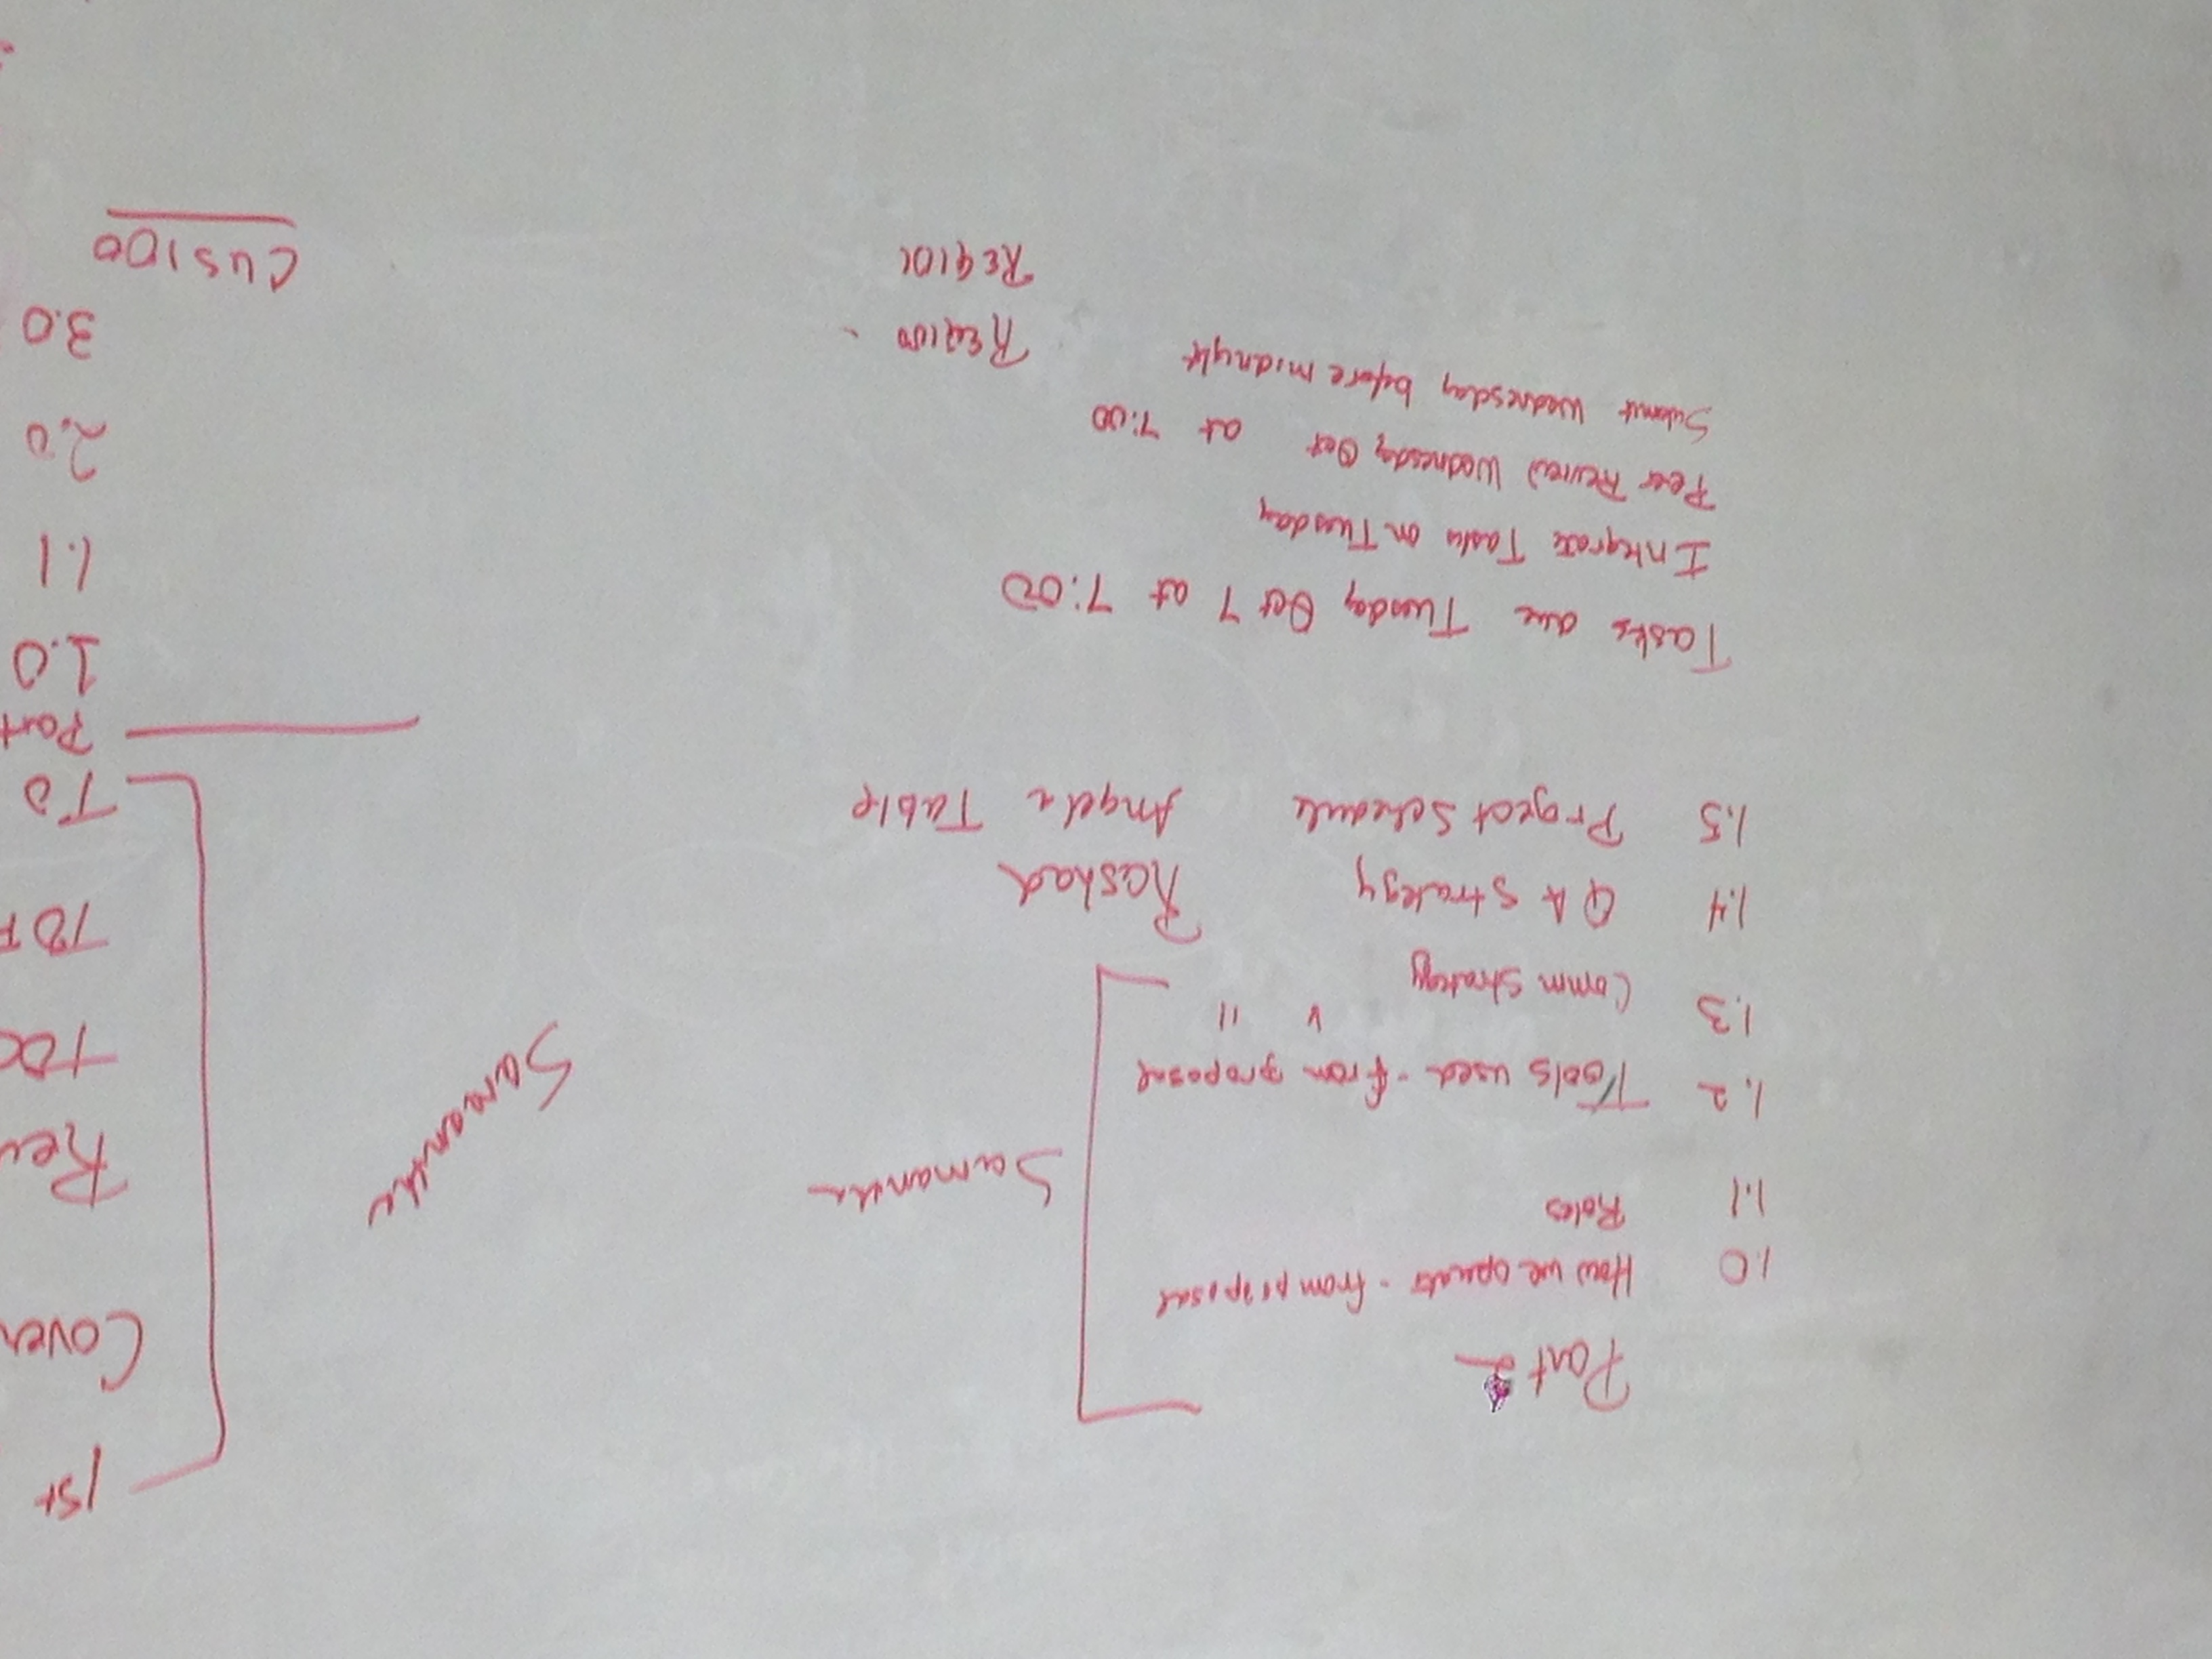 Part 2
1.0 How we operate - from proposal
1.1 Roles
Samantha
1.2 Tools used - from proposal
1.3 Comm Strategy " "
1.4 QA Strategy Rashad
1.5 Project Schedule Angela Table
Tasks due Tuesday Oct 7 at 7:00
Integrate Tasks on Tuesday
Peer Review Wednesday Oct at 7:00
Submit Wednesday before midnight
REQ100 -
REQ101
Samantha
1st
Cover
Rev
TOC
TOF
TO
Part
1.0
1.1
2.0
3.0
CUS100